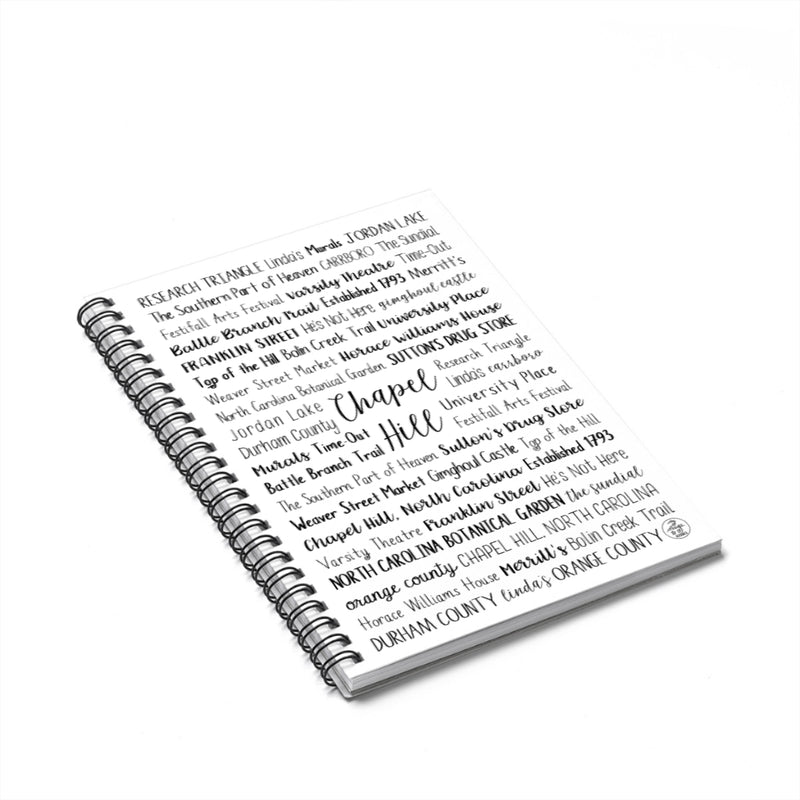 RESEARCH TRIANGLE Linda's Murals JORDAN LAKE
The Southern Part of Heaven CARRBORO The Sundial
Festifall Arts Festival Varsity Theatre Time-Out
Battle Branch Trail Established 1793 Merritt's
FRANKLIN STREET He's Not Here gimghoul castle
Top of the Hill Bolin Creek Trail University Place
Weaver Street Market Horace Williams House
North Carolina Botanical Garden SUTTON'S DRUG STORE
Jordan Lake Chapel Research Triangle
Durham County Linda's carrboro
Murals Time-Out Hill University Place
Battle Branch Trail Festifall Arts Festival
The Southern Part of Heaven Sutton's Drug Store
Weaver Street Market Gimghoul Castle Top of the Hill
Chapel Hill, North Carolina Established 1793
Varsity Theatre Franklin Street He's Not Here
NORTH CAROLINA BOTANICAL GARDEN the sundial
orange county CHAPEL HILL, NORTH CAROLINA
Horace Williams House Merritt's Bolin Creek Trail
DURHAM COUNTY linda's ORANGE COUNTY